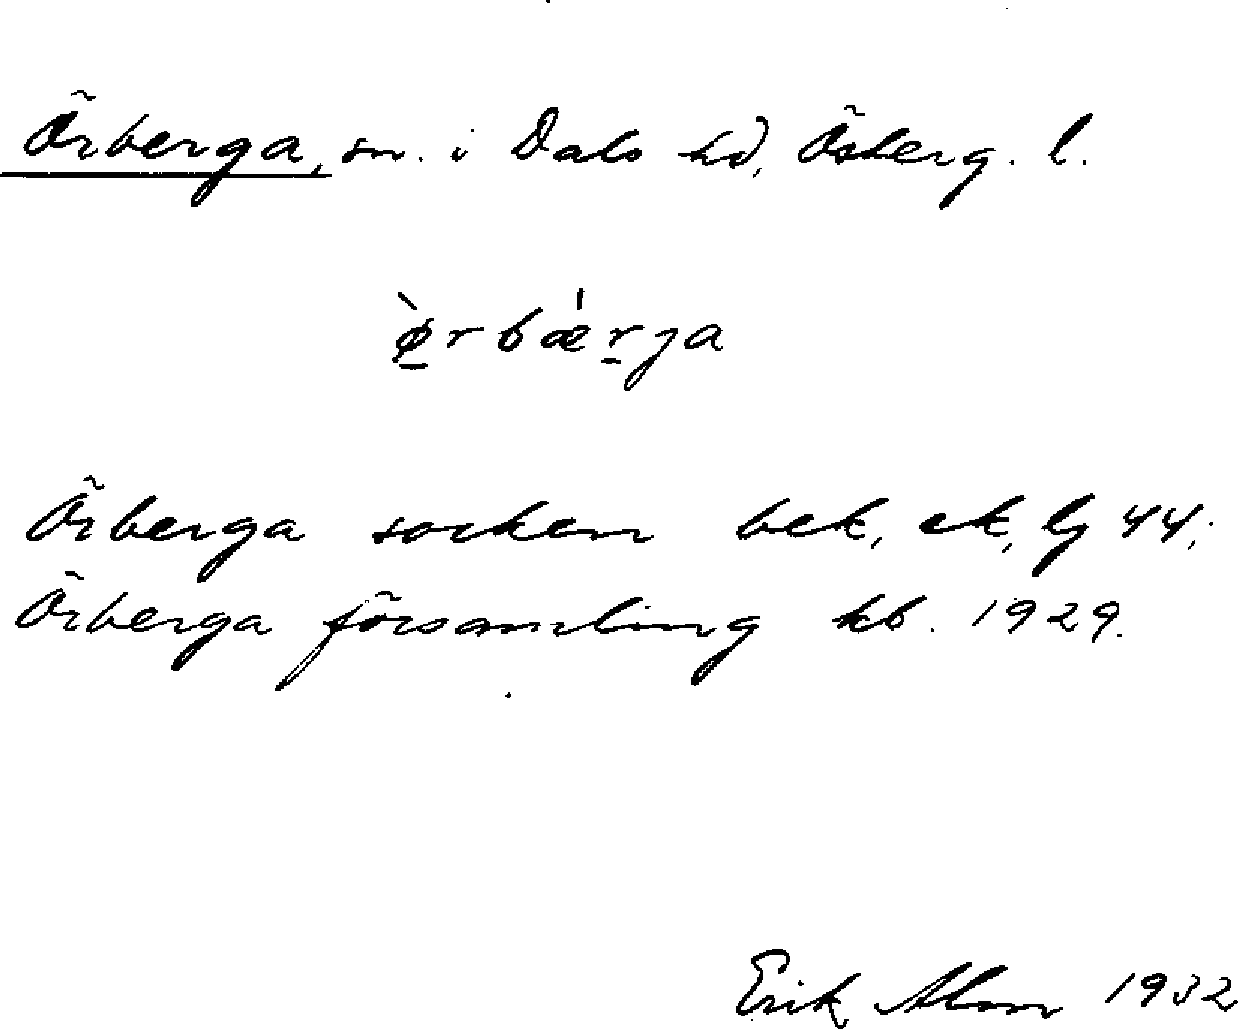 Örberga, sn. i Dals hd, Österg. l.
ø̱̀rbǽṟja
Örberga socken bek, ek, lj 44;
Örberga församling kb. 1929.
Erik Abm 1932